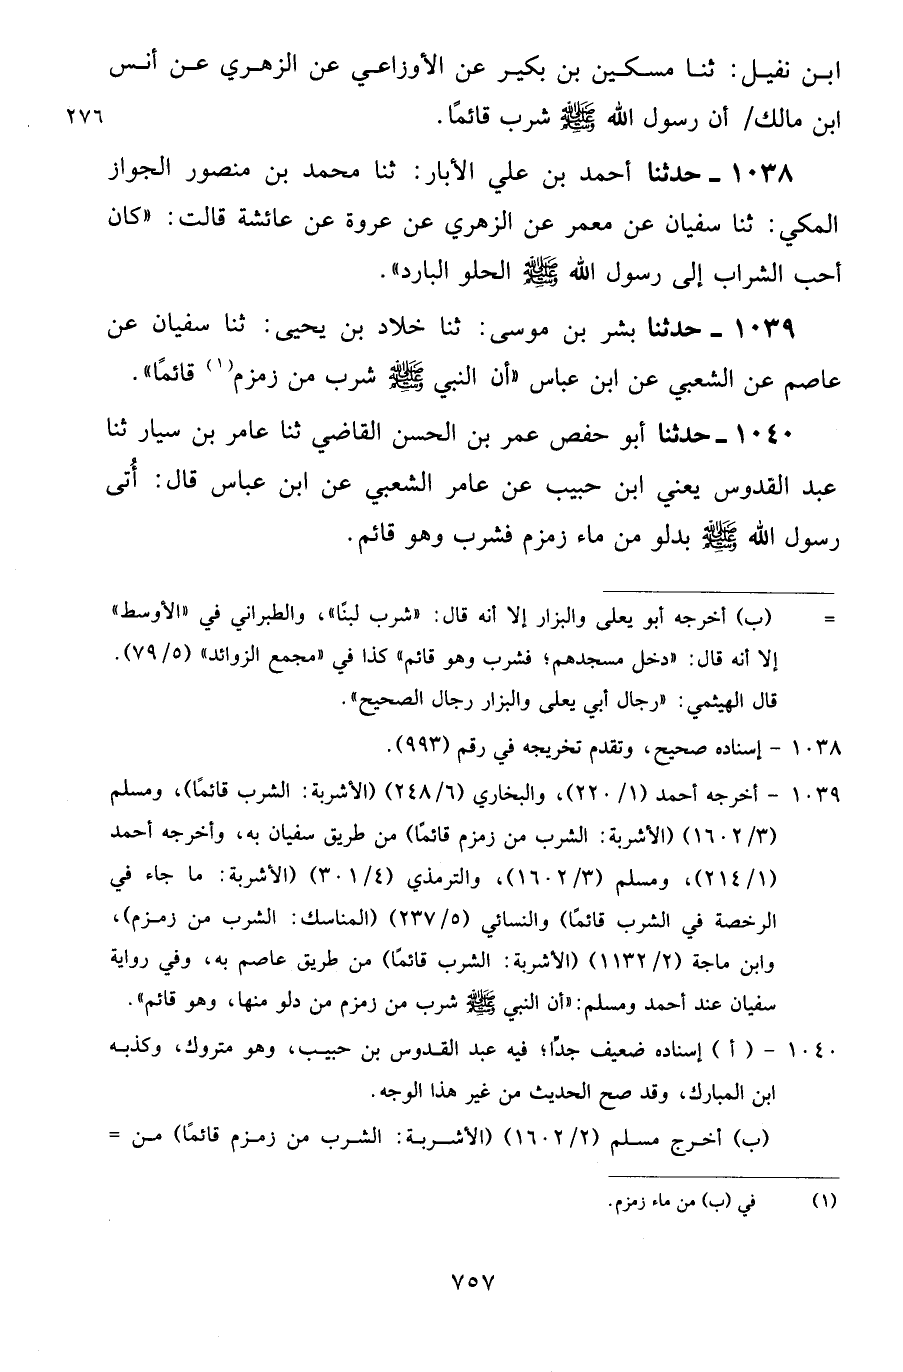 ابن نفيل: ثنا مسكين بن بكير عن الأوزاعي عن الزهري عن أنس
ابن مالك/ أن رسول الله ﷺ شرب قائمًا. ٢٧٦
١٠٣٨ ـ حدثنا أحمد بن علي الأبار: ثنا محمد بن منصور الجواز
المكي: ثنا سفيان عن معمر عن الزهري عن عروة عن عائشة قالت: «كان
أحب الشراب إلى رسول الله ﷺ الحلو البارد».
١٠٣٩ ـ حدثنا بشر بن موسى: ثنا خلاد بن يحيى: ثنا سفيان عن
عاصم عن الشعبي عن ابن عباس «أن النبي ﷺ شرب من زمزم(١) قائمًا».
١٠٤٠ ـ حدثنا أبو حفص عمر بن الحسن القاضي ثنا عامر بن سيار ثنا
عبد القدوس يعني ابن حبيب عن عامر الشعبي عن ابن عباس قال: أُتى
رسول الله ﷺ بدلو من ماء زمزم فشرب وهو قائم.
= (ب) أخرجه أبو يعلى والبزار إلا أنه قال: «شرب لبنًا»، والطبراني في «الأوسط»
إلا أنه قال: «دخل مسجدهم؛ فشرب وهو قائم» كذا في «مجمع الزوائد» (٧٩/٥).
قال الهيثمي: «رجال أبي يعلى والبزار رجال الصحيح».
١٠٣٨ - إسناده صحيح، وتقدم تخريجه في رقم (٩٩٣).
١٠٣٩ - أخرجه أحمد (٢٢٠/١)، والبخاري (٢٤٨/٦) (الأشربة: الشرب قائمًا)، ومسلم
(١٦٠٢/٣) (الأشربة: الشرب من زمزم قائمًا) من طريق سفيان به، وأخرجه أحمد
(٢١٤/١)، ومسلم (١٦٠٢/٣)، والترمذي (٣٠١/٤) (الأشربة: ما جاء في
الرخصة في الشرب قائمًا) والنسائي (٢٣٧/٥) (المناسك: الشرب من زمزم)،
وابن ماجة (١١٣٢/٢) (الأشربة: الشرب قائمًا) من طريق عاصم به، وفي رواية
سفيان عند أحمد ومسلم: «أن النبي ﷺ شرب من زمزم من دلو منها، وهو قائم».
١٠٤٠ - ( أ ) إسناده ضعيف جدًا؛ فيه عبد القدوس بن حبيب، وهو متروك، وكذبه
ابن المبارك، وقد صح الحديث من غير هذا الوجه.
(ب) أخرج مسلم (١٦٠٢/٢) (الأشربة: الشرب من زمزم قائمًا) من =
(١) في (ب) من ماء زمزم.
٧٥٧